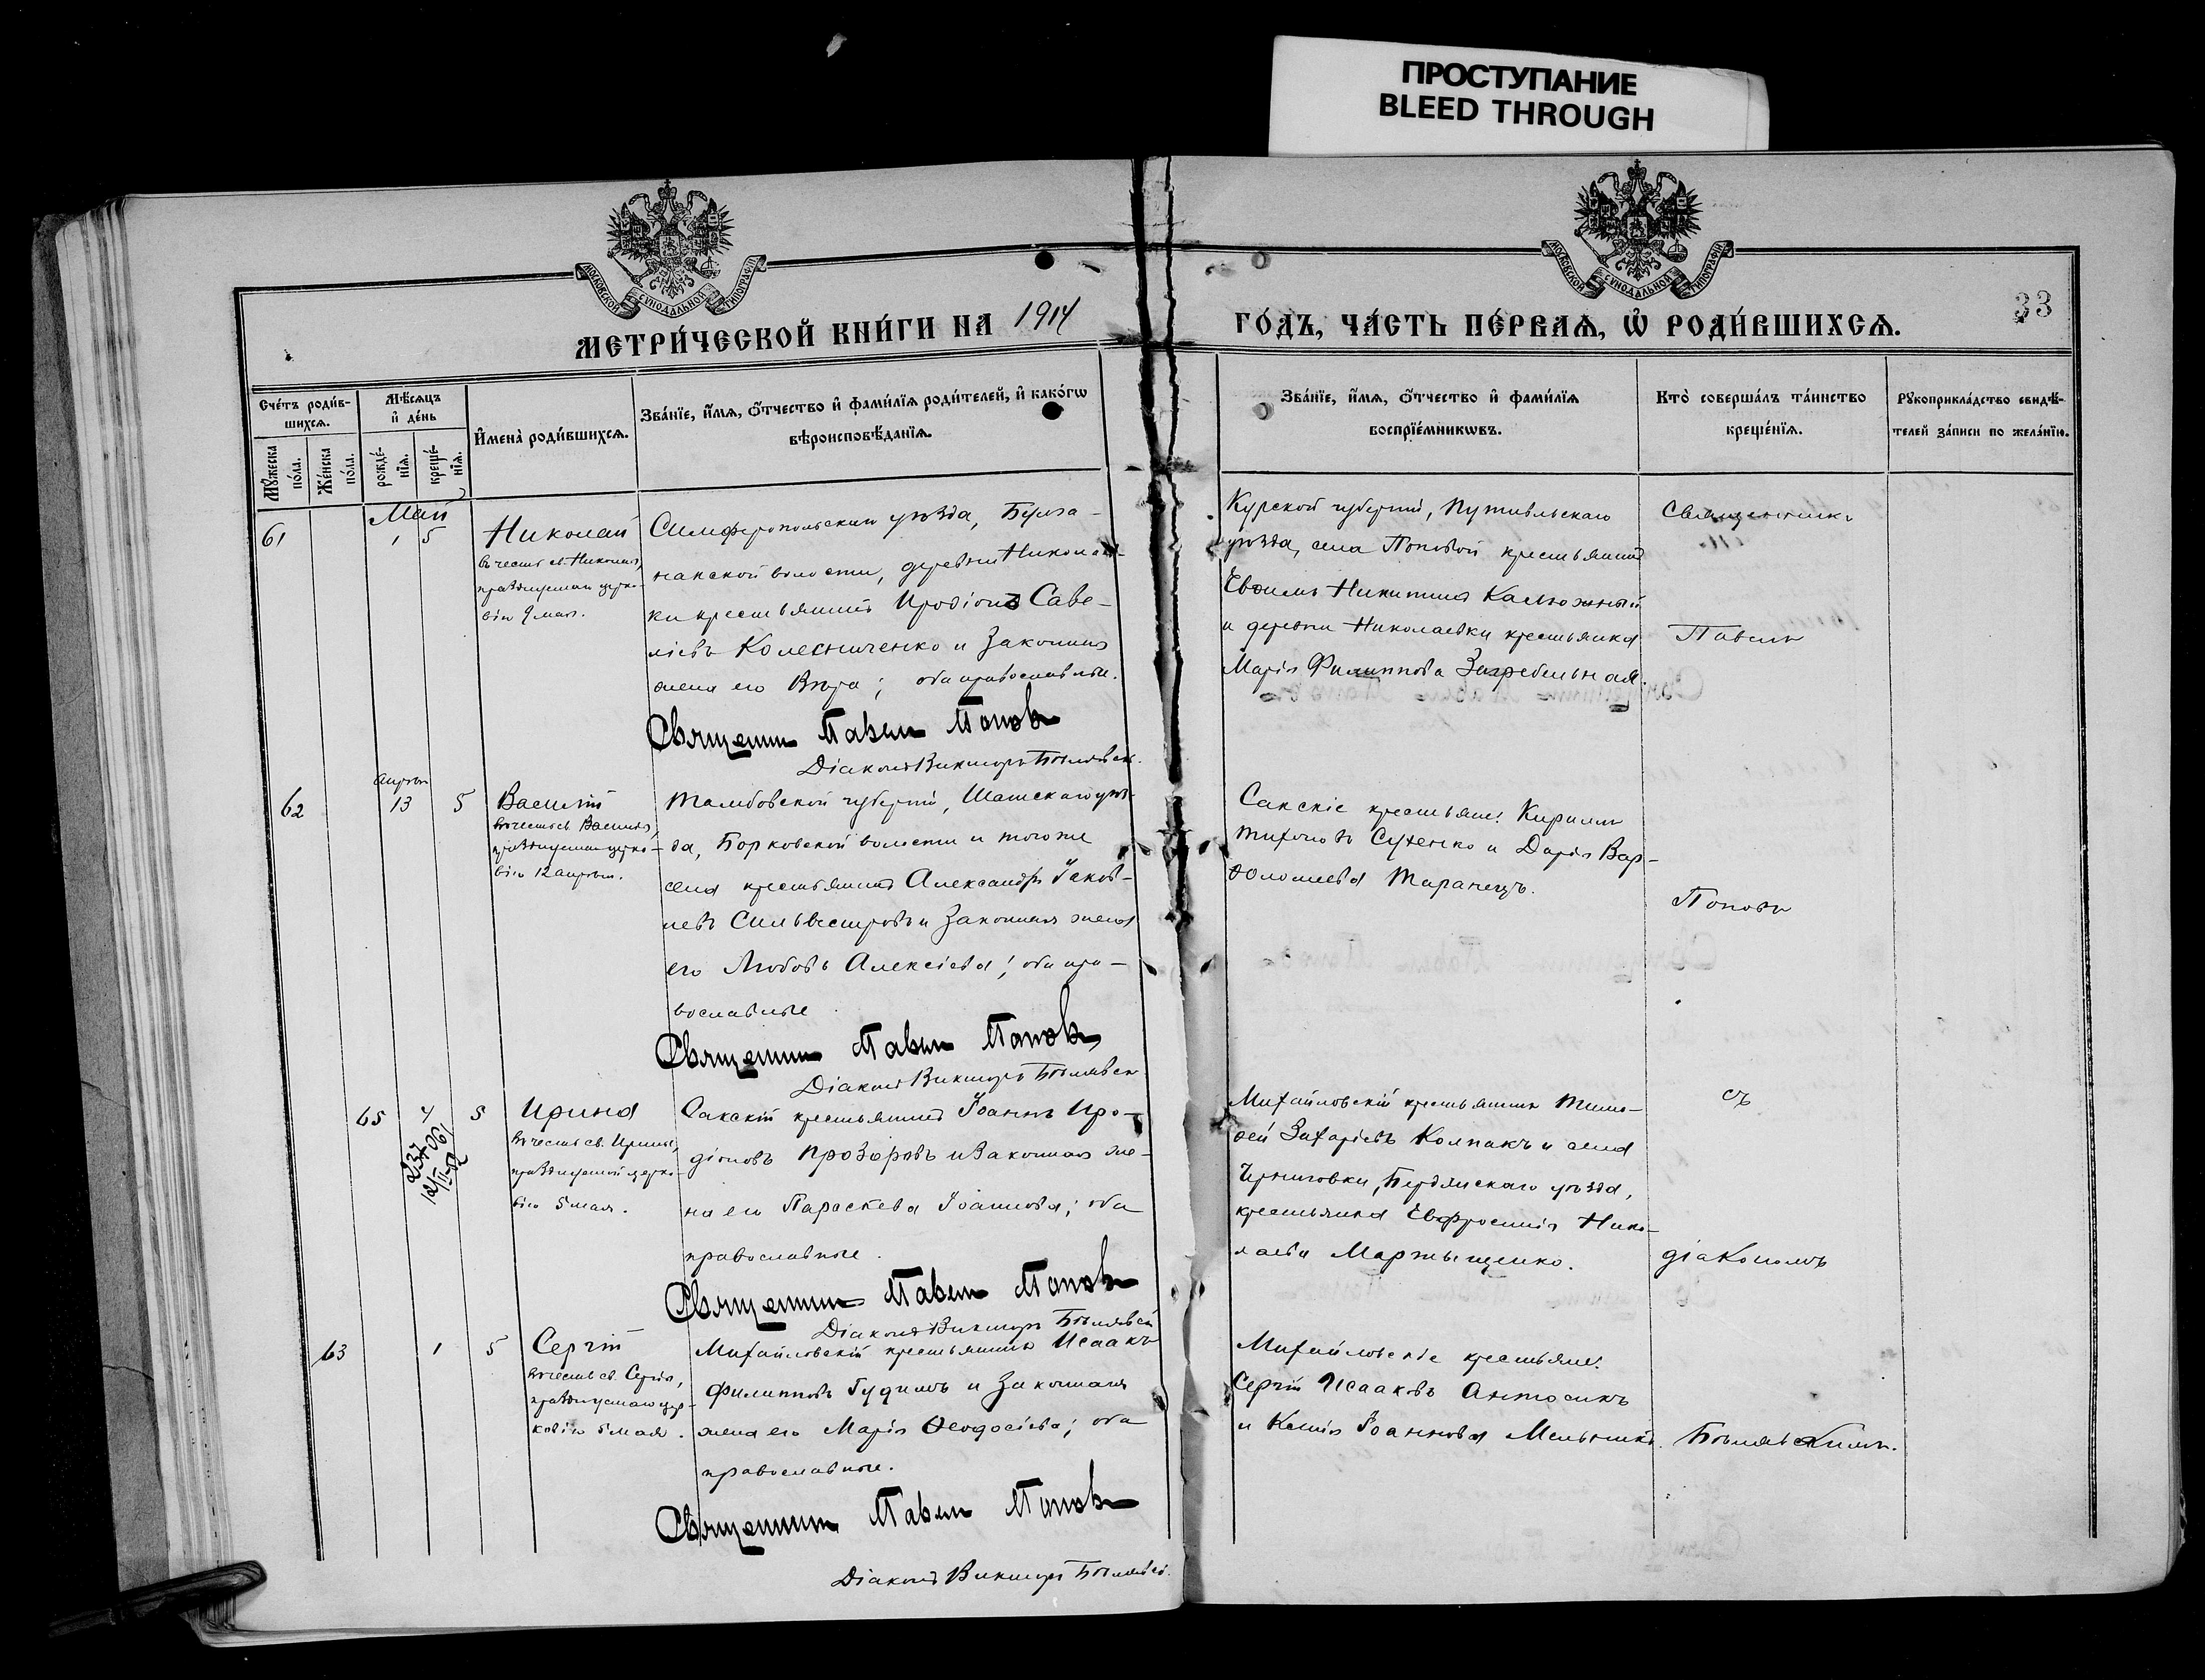 ПРОСТУПАНИЕ
BLEED THROUGH
МОСКОВСКОЙ СѴНОДАЛЬНОЙ ТИПОГРАФІИ
МОСКОВСКОЙ СѴНОДАЛЬНОЙ ТИПОГРАФІИ
МЕТРИ́ЧЕСКОЙ КНИ́ГИ НА 1914
ГО́ДЪ, ЧА́СТЬ ПЕ́РВАѦ, Ѡ҆ РОДИ́ВШИХСѦ.
33
Сче́тъ роди́в-
шихсѧ.
Мꙋ́жеска
по́ла.
Же́нска
по́ла.
Мѣ́сѧцъ
и҆ де́нь
рожде́-
нїѧ.
креще́-
нїѧ.
И҆мена̀ роди́вшихсѧ.
Зва́нїе, и҆́мѧ, ѻ҆́тчество и҆ фамилїѧ роди́телей, и҆ како́гѡ
вѣроисповѣ́данїѧ.
Зва́нїе, и҆́мѧ, ѻ҆́тчество и҆ фами́лїѧ
воспрїе́мникѡвъ.
Кто̀ соверша́лъ та́инство
креще́нїѧ.
Рꙋкоприкла́дство свидѣ́-
телей за́писи по жела́нїю.
Май
61
1 5
Николай
въ честь св. Николая,
празднуемаго церко-
вію 9 мая.
Симферопольскаго уѣзда, Булга-
накской волости, деревни Николаев-
ки крестьянинъ Иродіонъ Саве-
ліевъ Колесниченко и законная
жена его Вѣра; оба православные.
Священникъ Павелъ Поповъ
Діаконъ Викторъ Бѣлявскій.
Курской губерніи, Путивльскаго
уѣзда, села Поповой крестьянинъ
Евѳимъ Никитинъ Калюжный
и деревни Николаевки крестьянка
Марія Филиппова Загребельная.
Священникъ
Павелъ
62
апрѣль
13 5
Василій
въ честь св. Василія,
празднуемаго церко-
вію 12 апрѣля.
Тамбовской губерніи, Шатскаго уѣз-
да, Борковской волости и того же
села крестьянинъ Александръ Іаков-
левъ Сильвестровъ и законная жена
его Любовь Алексіева; оба пра-
вославные
Священникъ Павелъ Поповъ
Діаконъ Викторъ Бѣлявскій
Сакскіе крестьяне: Кириллъ
Тихоновъ Сухенко и Дарія Вар-
ѳоломеева Таранецъ.
Поповъ
65
4 5
23406
12/II-52
Ирина
въ честь св. Ирины,
празднуемой церко-
вію 5 мая.
Сакскій крестьянинъ Іоаннъ Иро-
діоновъ Прозоровъ и законная же-
на его Параскева Іоаннова; оба
православные.
Священникъ Павелъ Поповъ
Діаконъ Викторъ Бѣлявскій
Михайловскій крестьянинъ Тимо-
ѳей Захаріевъ Колпакъ и села
Черниговки, Бердянскаго уѣзда,
крестьянка Евфросинія Нико-
лаева Мартыщенко.
съ
діакономъ
63
1 5
Сергій
въ честь св. Сергія,
празднуемаго цер-
ковію 5 мая.
Михайловскій крестьянинъ Исаакъ
Филипповъ Гудимъ и законная
жена его Марія Ѳеодосіева; оба
православные.
Священникъ Павелъ Поповъ
Діаконъ Викторъ Бѣлявскій.
Михайловскіе крестьяне:
Сергій Исааковъ Антосикъ
и Ксенія Іоаннова Мельникъ.
Бѣлявскимъ.